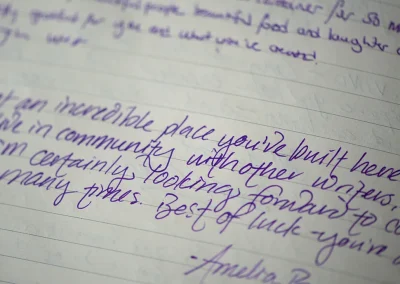 for so
people beautiful food and laughter
grateful for you and what you've created!
an incredible place you've built here
in community with other writers.
certainly looking forward to
many times. Best of luck - you're
- Amelia